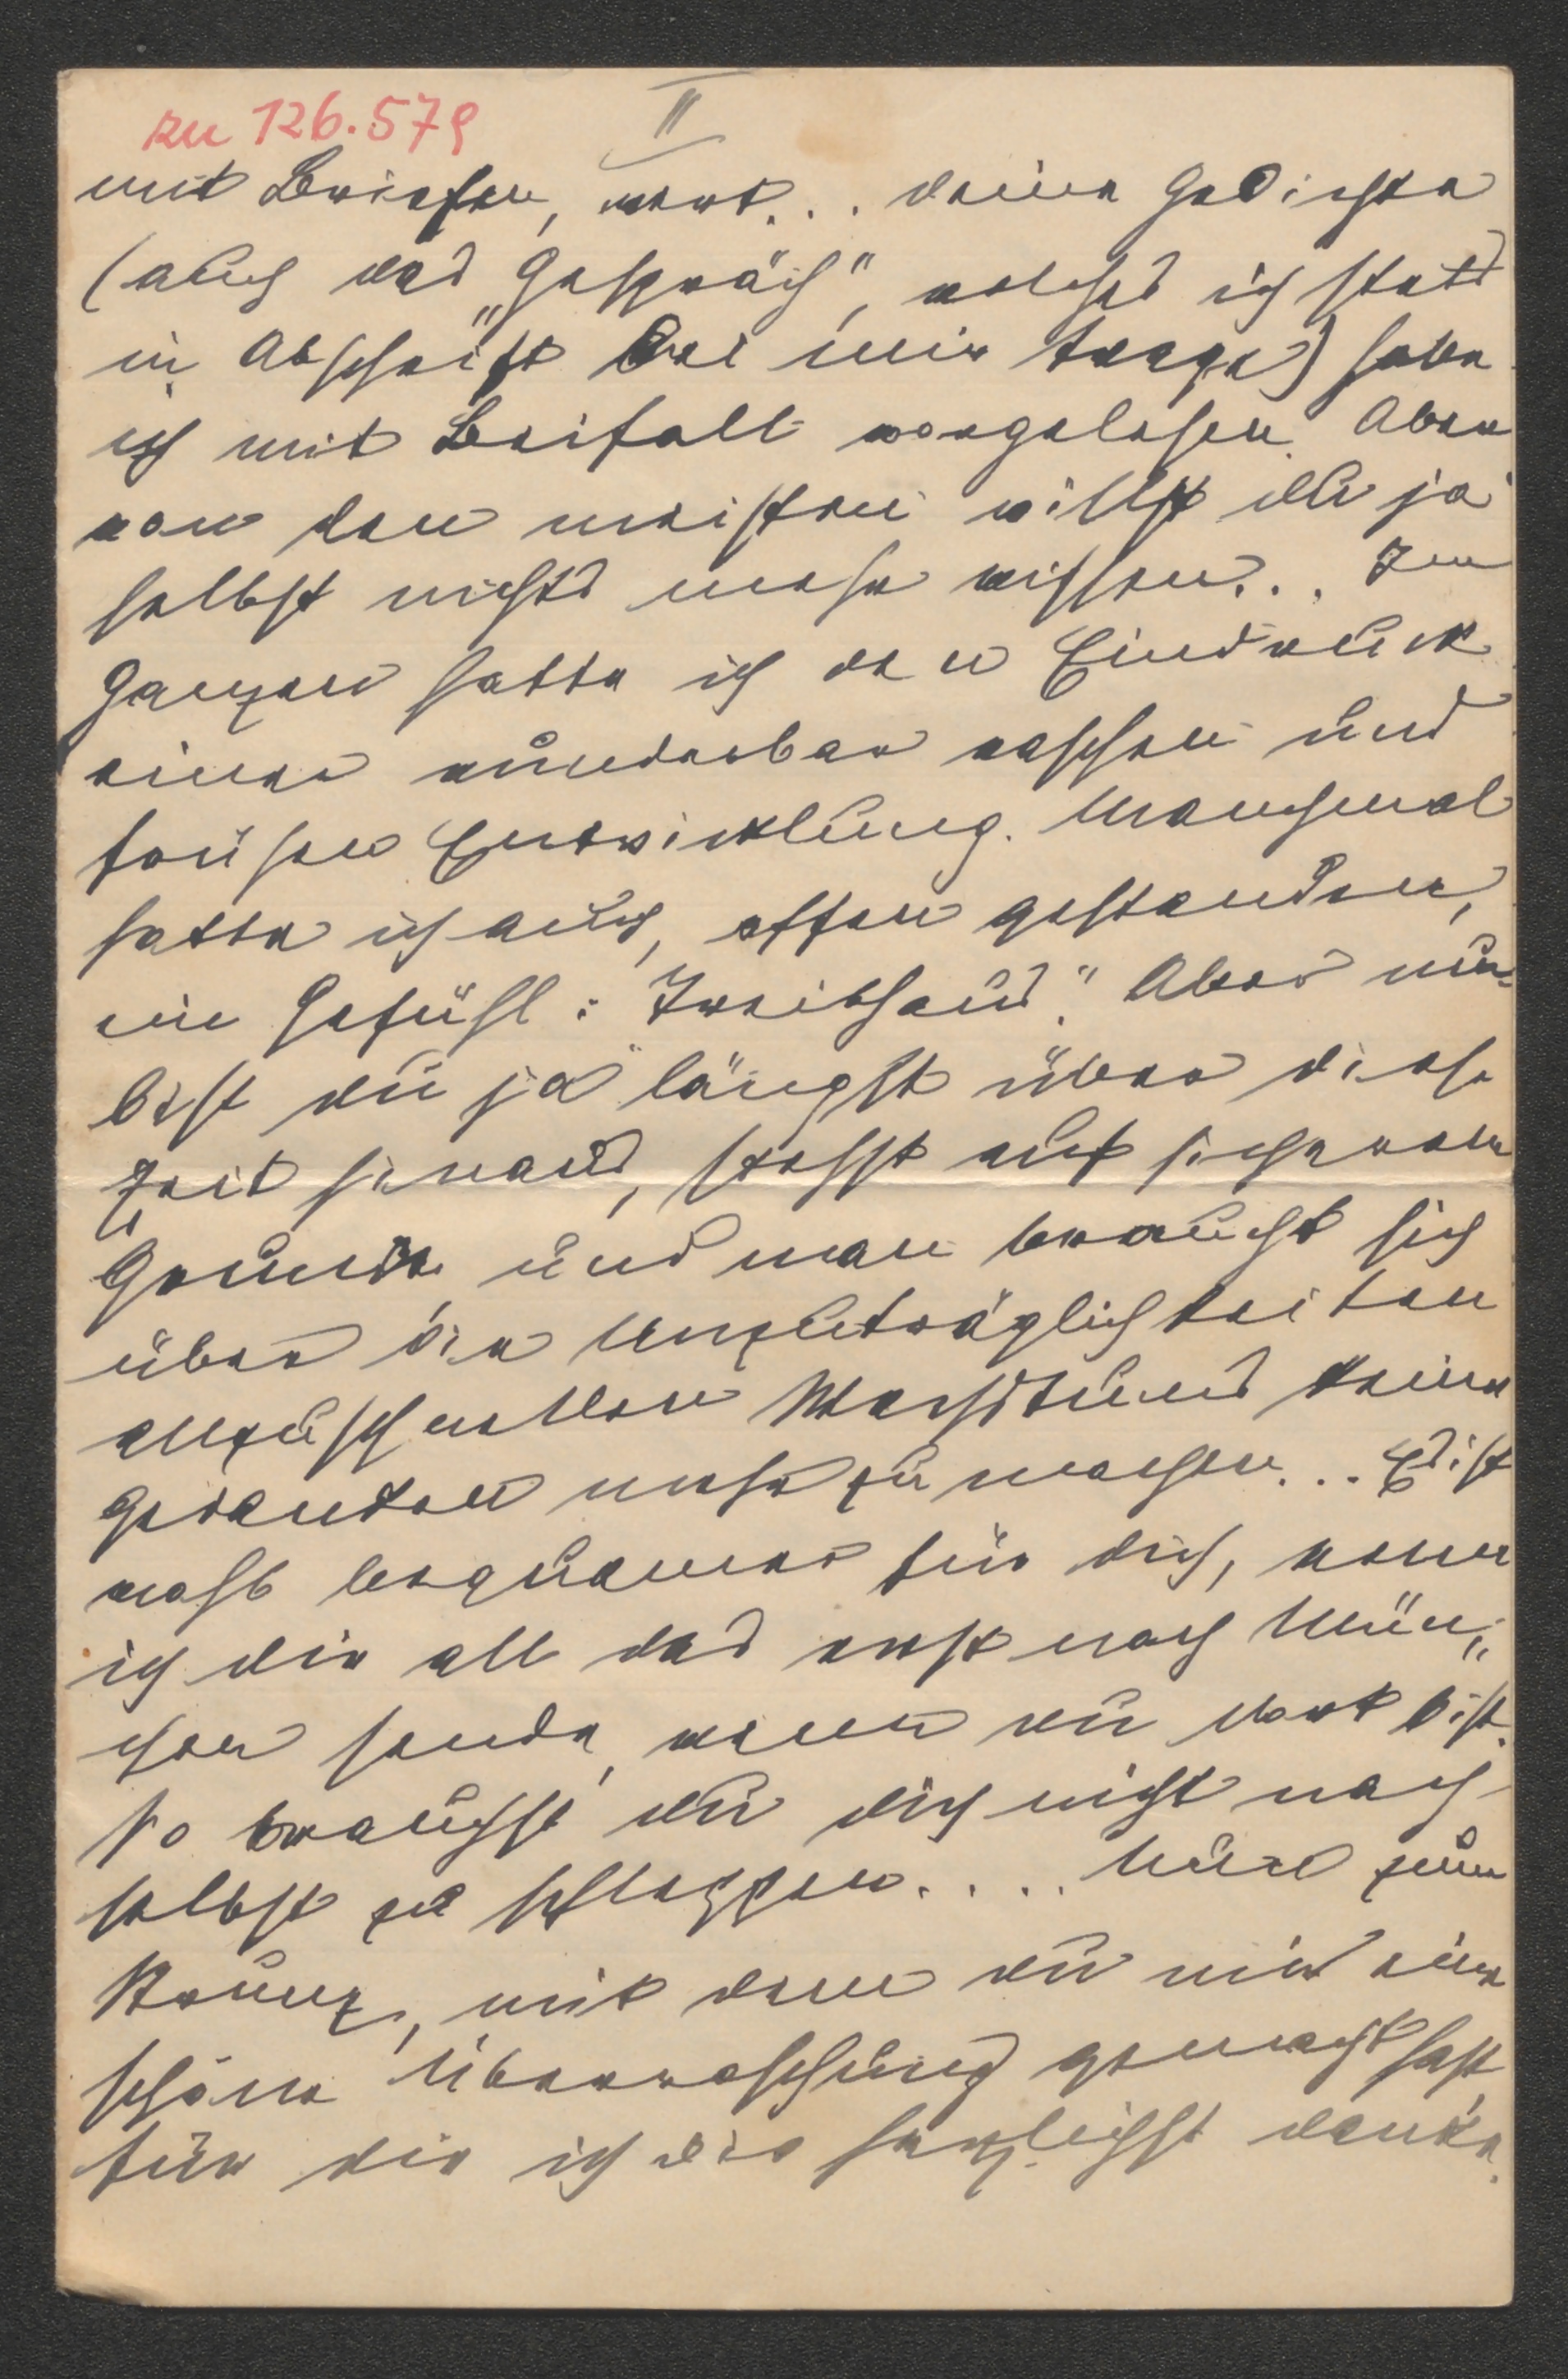 zu 126.579
II
mit Briefen, wert... deine Gedichte
(auch das „Gespräch", welches ich stets
in Abschrift bei mir trage) habe
ich mit Beifall vorgelesen. Aber
von den meisten willst du ja
selbst nichts mehr wissen... Im
Ganzen hatte ich den Eindruck
einer wunderbar raschen und
frühen Entwicklung. Manchmal
hatte ich auch, offen gestanden,
ein Gefühl: Treibhaus." Aber nun
bist du ja längst über diese
Zeit hinaus, stehst auf sicherem
Grunde und man braucht sich
über die Unzuträglichkeiten
allzuschnellen Wachstums keine
Gedanken mehr zu machen... Es ist
wohl bequemer für dich, wenn
ich dir all das erst nach Mün„
chen sende, wenn du dort bist.
So brauchst du dich nicht nach
selbst zu schleppen.... Nun zum
, mit dem du mir eine
schöne Überraschung gemacht hast,
für die ich dir herzlichst danke.